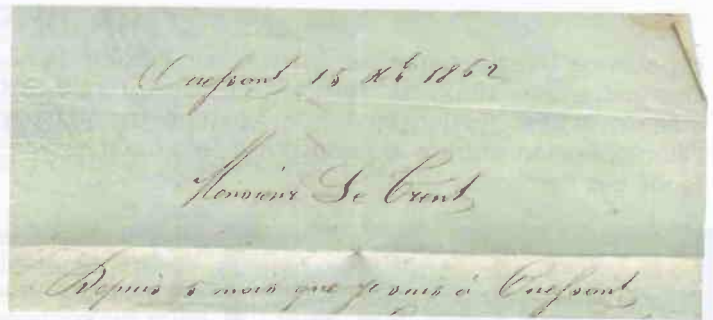 Ouessant 15 Xb 1862
Monsieur Le Crent
Depuis 5 mois que je suis à Ouessant